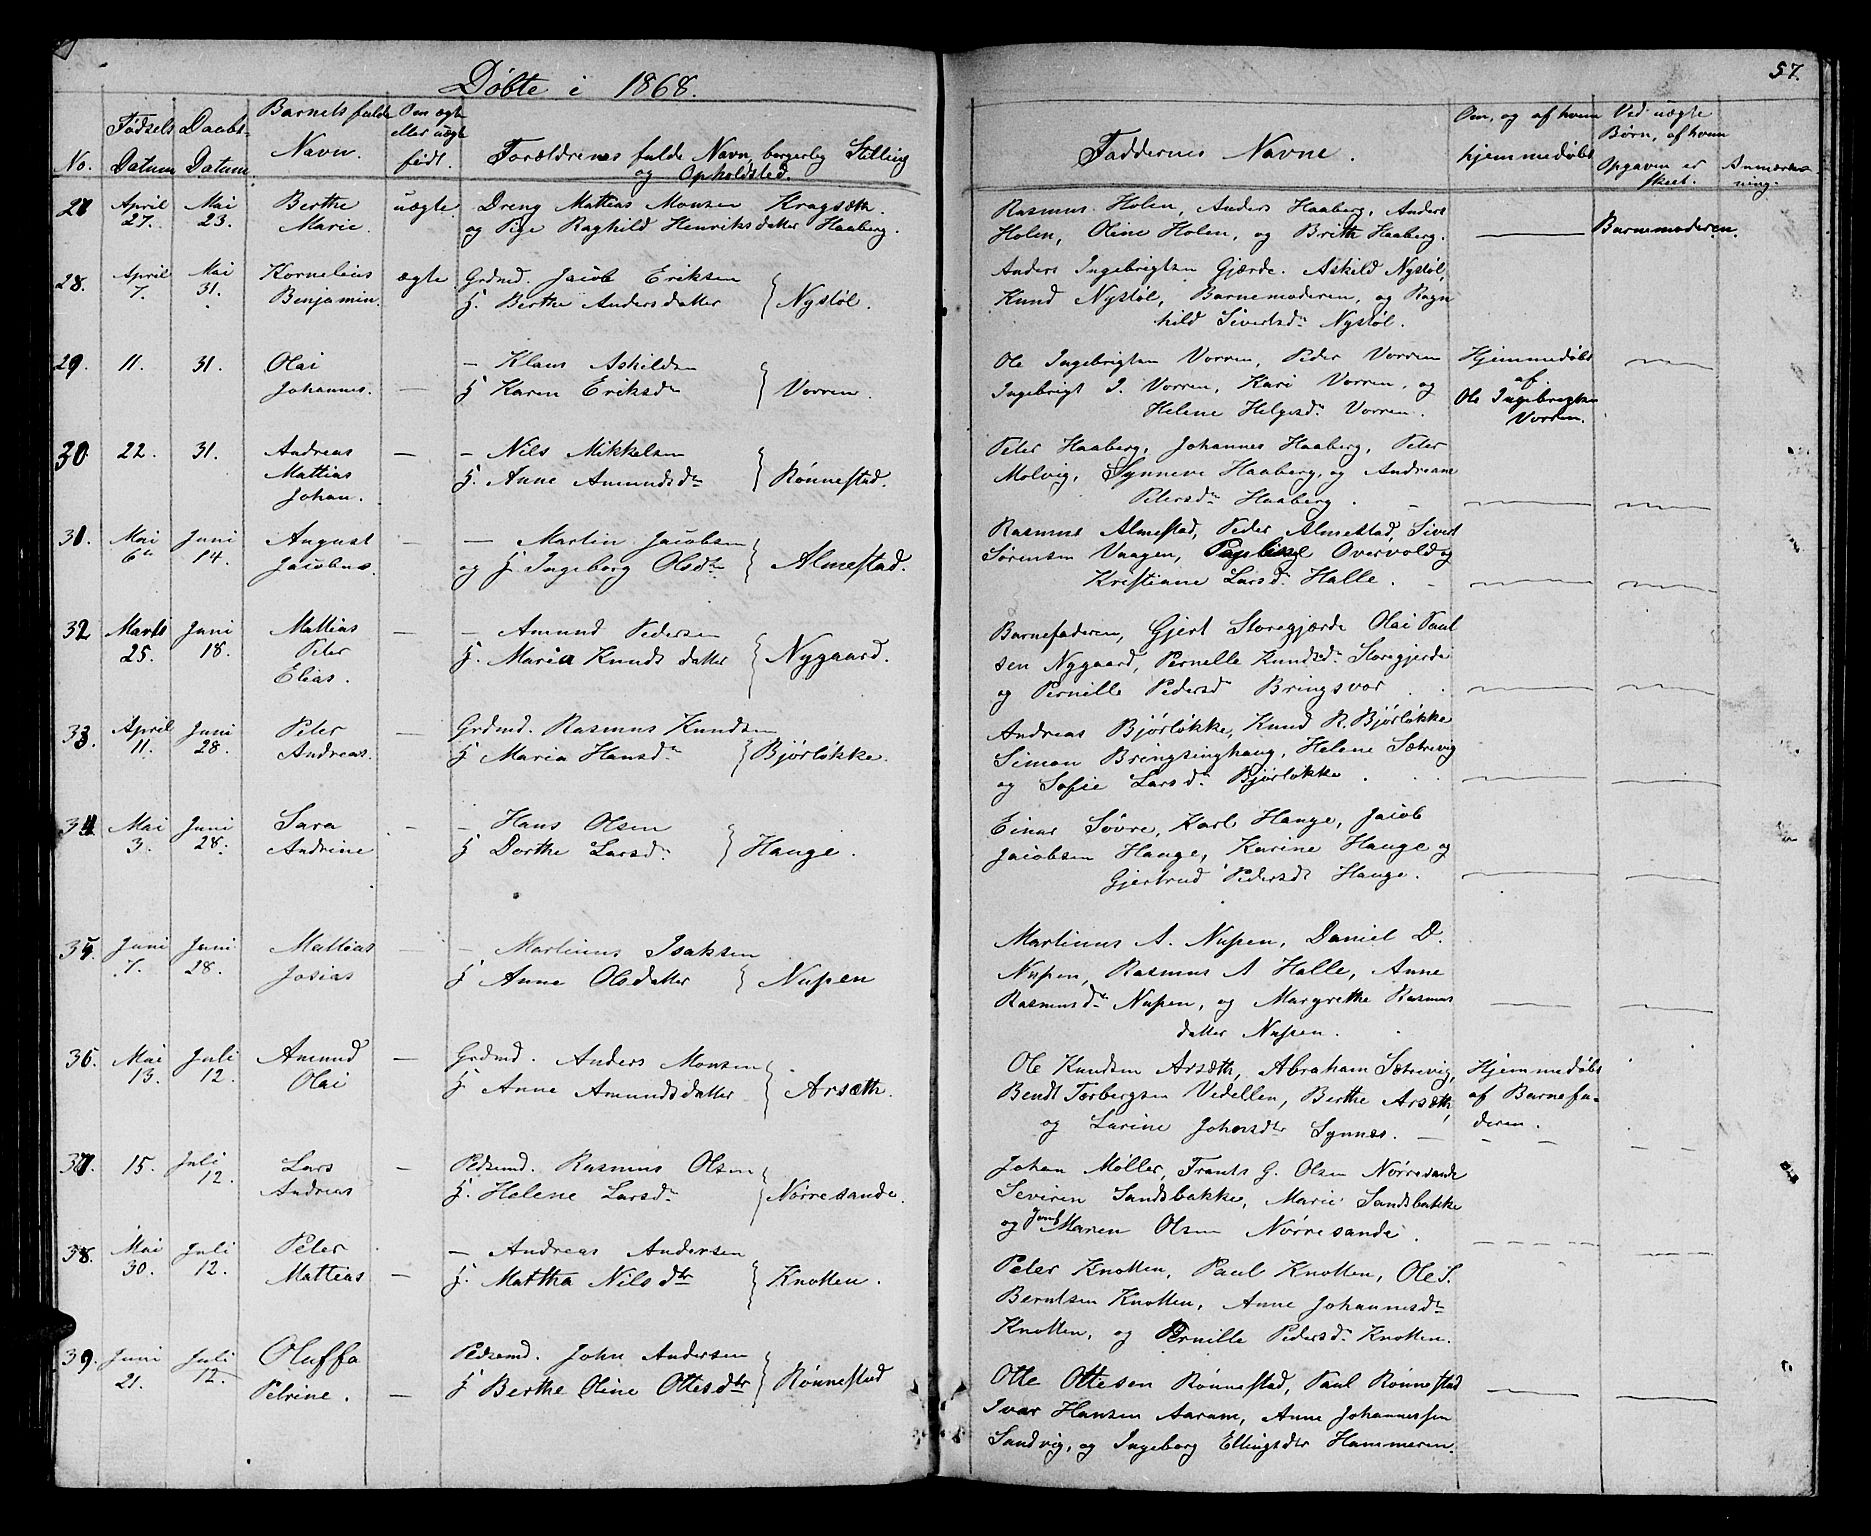 Døbte i 1868.
57.
No.
Fødsels Datum
Daabs- Datum.
Barnets fulde Navn.
Om ægte eller uægte født.
Forældrenes fulde Navn, borgerlig Stilling og Opholdsted.
Faddernes Navne.
Om, og af hvem hjemmedøbt
Ved uægte Børn, af hvem Opgaven er skeet.
Anmærkning.
27 April 27. Mai 23. Berthe Marie. uægte. Dreng Mattias Monsen Kragsæth.
og Pige Raghild Henriksdatter Haaberg.
Rasmus Holen, Anders Haaberg, Anders
Holen, Oline Holen, og Brithe Haaberg. — Barnemoderen.
28. April 7. Mai 31. Kornelius Benjamin. ægte Grdmd. Jacob Eriksen
H. Berthe Andersdatter } Nystøl.
Anders Ingebrigtsen Gjærde. Askild Nystøl,
Knud Nystøl, Barnemoderen, og Ragn
hild Sivertsdr Nystøl.
29. 11. 31. Olai Johannes. — — Klaus Askildsen
H Karen Eriksdr } Vorren.
Ole Ingebrigtsen Vorren, Peder Vorren
Ingebrigt I. Vorren, Kari Vorren, og
Helene Helgesdr Vorren.
Hjemmedøbt
af
Ole Ingebrigtsen
Vorren.
30 22. 31. Andreas Mattias Johan. — — Nils Mikkelsen
H. Anne Amundsdr } Rønnestad.
Peter Haaberg, Johannes Haaberg, Peter
Molvig, Synneve Haaberg, og Andreane
Petersdr Haaberg.
31. Mai 6te Juni 14. August Jacobus. - — Martin Jacobsen
og H. Ingeborg Olsdtr } Almestad.
Rasmus Almestad, Peder Almestad, Sivert
Sørensen Vaagen, Overvold og
Kristiane Larsd. Halle.
32 Marts 25. Juni 18. Mattias Peter Elias. — — Amund Pedersen
H. Maria Knudsdatter } Nygaard.
Barnefaderen, Gjert Storegjærde Olai Paul
sen Nygaard, Pernelle Knudsdr Storegjerde
og Pernille Pedersd Bringsvor
33. April 11. Juni 28. Peter Andreas. — Grdmd. Rasmus Knudsen
H Maria Hansdr } Bjørløkke.
Andreas Bjørløkke, Knud R. Bjørløkke
Simon Bringsinghaug, Helene Sætrevig
og Sofie Larsdr Bjørløkke.
34 Mai 3. Juni 28. Sara Andrine - - Hans Olsen
H Dorthe Larsdr } Hauge.
Einar Søvre, Karl Hauge, Jacob
Jacobsen Hauge, Karine Hauge og
Gjertrud Pedersdr Hauge.
35 Juni 7. Juni 28. Mattias Josias — — Martinus Isaksen
H Anne Olsdatter } Nupen
Martinus A. Nupen, Daniel D.
Nupen, Rasmus A Halle, Anne
Rasmusdr Nupen, og Margrethe Rasmus
datter Nupen.
36. Mai 13. Juli 12. Amund Olai — Grdmd. Anders Monsen
H Anne Amundsdatter } Arsæth.
Ole Knudsen Arsæth, Abraham Sætrevig,
Bendt Torbergsen Vedellen, Berthe Arsæth,
og Larine Johnsdtr Synnes. —
Hjemmedøbt
af Barnefa-
deren.
37. 15. Juli 12. Lars Andreas — Pdsmd. Rasmus Olsen
H. Helene Larsdr } Nørresande.
Johan Møller, Frants G. Olsen Nørresande
Severin Sandsbakke, Marie Sandsbakke
og Jomf Maren Olsen Nørresande.
38. Mai 30. Juli 12. Peter Mattias — — Andreas Andersen
H. Mattha Nilsdtr } Knotten.
Peter Knotten, Paul Knotten, Ole S.
Berntsen Knotten, Anne Johannesdr
Knotten, og Pernille Pedersdr Knotten.
39. Juni 21. Juli 12. Oluffa Petrine. — Pdsmd. John Andersen
H Berthe Oline Ottesdtr } Rønnestad
Otte Ottesen Rønnestad, Paul Rønnestad
Ivar Hansen Aaram, Anne Johannessen
Sandvig, og Ingeborg Ellingsdtr Hammeren.